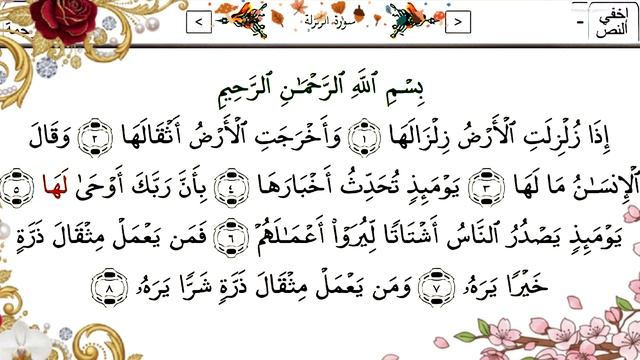 إخفي
النص
سورة الزلزلة
بِسْمِ ٱللَّهِ ٱلرَّحْمَـٰنِ ٱلرَّحِيمِ
إِذَا زُلْزِلَتِ ٱلْأَرْضُ زِلْزَالَهَا ١ وَأَخْرَجَتِ ٱلْأَرْضُ أَثْقَالَهَا ٢ وَقَالَ
ٱلْإِنسَـٰنُ مَا لَهَا ٣ يَوْمَئِذٍ تُحَدِّثُ أَخْبَارَهَا ٤ بِأَنَّ رَبَّكَ أَوْحَىٰ لَهَا ٥
يَوْمَئِذٍ يَصْدُرُ ٱلنَّاسُ أَشْتَاتًا لِّيُرَوْا۟ أَعْمَـٰلَهُمْ ٦ فَمَن يَعْمَلْ مِثْقَالَ ذَرَّةٍ
خَيْرًا يَرَهُۥ ٧ وَمَن يَعْمَلْ مِثْقَالَ ذَرَّةٍ شَرًّا يَرَهُۥ ٨